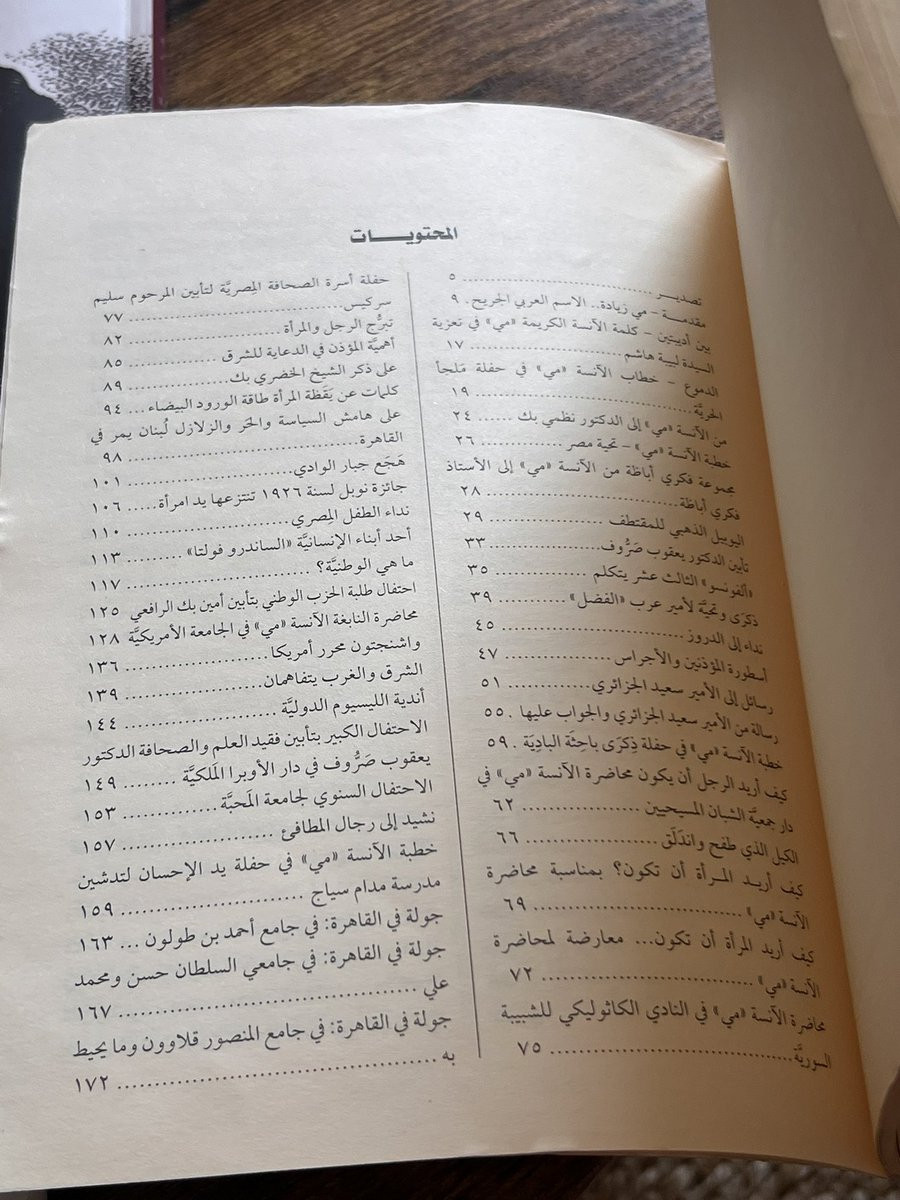 المحتويـــــات
تصديـر ........................ ٥
مقدمـة – مي زيادة.. الاسم العربي الجريح. ٩
بين أديبتين – كلمة الآنسة الكريمة «مي» في تعزية
السيدة لبيبة هاشم ........................ ١٧
الدموع – خطاب الآنسة «مي» في حفلة مَلجأ
الحريَّة ........................ ١٩
من الآنسة «مي» إلى الدكتور نظمي بك ...... ٢٤
خطبة الآنسة «مي» – تحية مصر ............ ٢٦
مجموعة فكري أباظة من الآنسة «مي» إلى الأستاذ
فكري أباظة ........................ ٢٨
اليوبيل الذهبي للمقتطف ............ ٢٩
تأبين الدكتور يعقوب صَرُّوف ............ ٣٣
«ألفونسو» الثالث عشر يتكلم ............ ٣٥
ذكرَى وتحيَّة لأمير عرب «الفضل» ............ ٣٩
نداء إلى الدروز ........................ ٤٥
أسطورة المؤذنين والأجراس ............ ٤٧
رسائل إلى الأمير سعيد الجزائري ............ ٥١
رسالة من الأمير سعيد الجزائري والجواب عليها . ٥٥
خطبة الآنسة «مي» في حفلة ذِكرَى باحِثَة البادِيَة . ٥٩
كيف أريد الرجل أن يكون محاضرة الآنسة «مي» في
دار جمعيَّة الشبان المسيحيين ............ ٦٢
الكيل الذي طفح واندَلَق ............ ٦٦
كيف أريـد المـرأة أن تكون؟ بمناسبة محاضرة
الآنسة «مي» ........................ ٦٩
كيف أريد المرأة أن تكون... معارضة لمحاضرة
الآنسة «مي» ........................ ٧٢
محاضرة الآنسة «مي» في النادي الكاثوليكي للشبيبة
السوريَّة ........................ ٧٥
حفلة أسرة الصحافة المِصريَّة لتأبين المرحوم سليم
سركيس ........................ ٧٧
تبرُّج الرجل والمرأة ........................ ٨٢
أهميَّة المؤذن في الدعاية للشرق ............ ٨٥
على ذكر الشيخ الخضري بك ............ ٨٩
كلمات عن يَقَظة المرأة طاقة الورود البيضاء ... ٩٤
على هامش السياسة والحَر والزلازل لُبنان يمر في
القاهرة ........................ ٩٨
هَجَع جبار الوادي ........................ ١٠١
جائزة نوبل لسنة ١٩٢٦ تنتزعها يد امرأة ..... ١٠٦
نداء الطفل المِصري ........................ ١١٠
أحد أبناء الإنسانيَّة «الساندرو فولتا» ......... ١١٣
ما هي الوطنيَّة؟ ........................ ١١٧
احتفال طلبة الحزب الوطني بتأبين أمين بك الرافعي ١٢٥
محاضرة النابغة الآنسة «مي» في الجامعة الأمريكيَّة ١٢٨
واشنجتون محرر أمريكا ............ ١٣٦
الشرق والغرب يتفاهمان ............ ١٣٩
أندية الليسيوم الدوليَّة ............ ١٤٤
الاحتفال الكبير بتأبين فقيد العلم والصحافة الدكتور
يعقوب صَرُّوف في دار الأوبرا المَلكيَّة ........ ١٤٩
الاحتفال السنوي لجامعة المَحبَّة ............ ١٥٣
نشيد إلى رجال المطافئ ............ ١٥٧
خطبة الآنسة «مي» في حفلة يد الإحسان لتدشين
مدرسة مدام سياج ........................ ١٥٩
جولة في القاهرة: في جامع أحمد بن طولون ... ١٦٣
جولة في القاهرة: في جامعي السلطان حسن ومحمد
علي ........................ ١٦٧
جولة في القاهرة: في جامع المنصور قلاوون وما يحيط
به ........................ ١٧٢